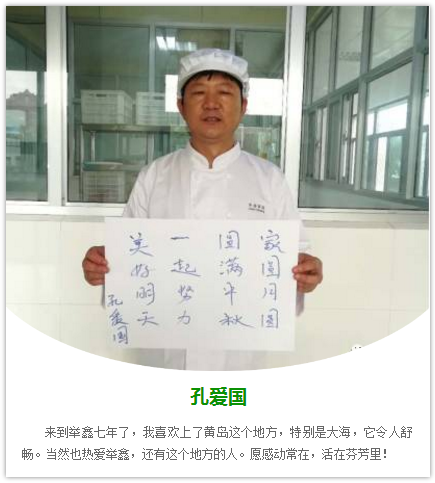 家圆月圆
圆满中秋
一起努力
美好明天
孔爱国
孔爱国
来到举鑫七年了，我喜欢上了黄岛这个地方，特别是大海，它令人舒
畅。当然也热爱举鑫，还有这个地方的人。愿感动常在，活在芬芳里！